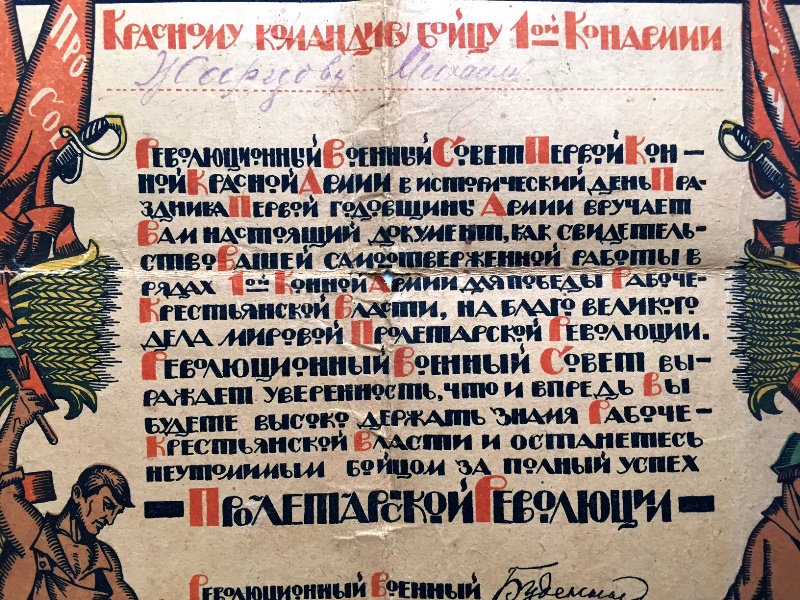 Красному командиву бойцу 1ой Конармии
Михаилу
Про
Сое
Революционный Военный Совет Первой Кон-
ной Красной Армии в исторический день Пра-
здника Первой годовщины Армии вручает
Вам настоящий документ, как свидетель-
ство Вашей самоотверженной работы в
рядах 1ой Конной Армии, для победы Рабоче-
Крестьянской Власти, на благо великого
дела мировой Пролетарской Революции.
Революционный Военный Совет вы-
ражает уверенность, что и впредь Вы
будете высоко держать знамя Рабоче-
Крестьянской Власти и останетесь
неутомимым бойцом за полный успех
— Пролетарской Революции —
Революционный Военный Буденный